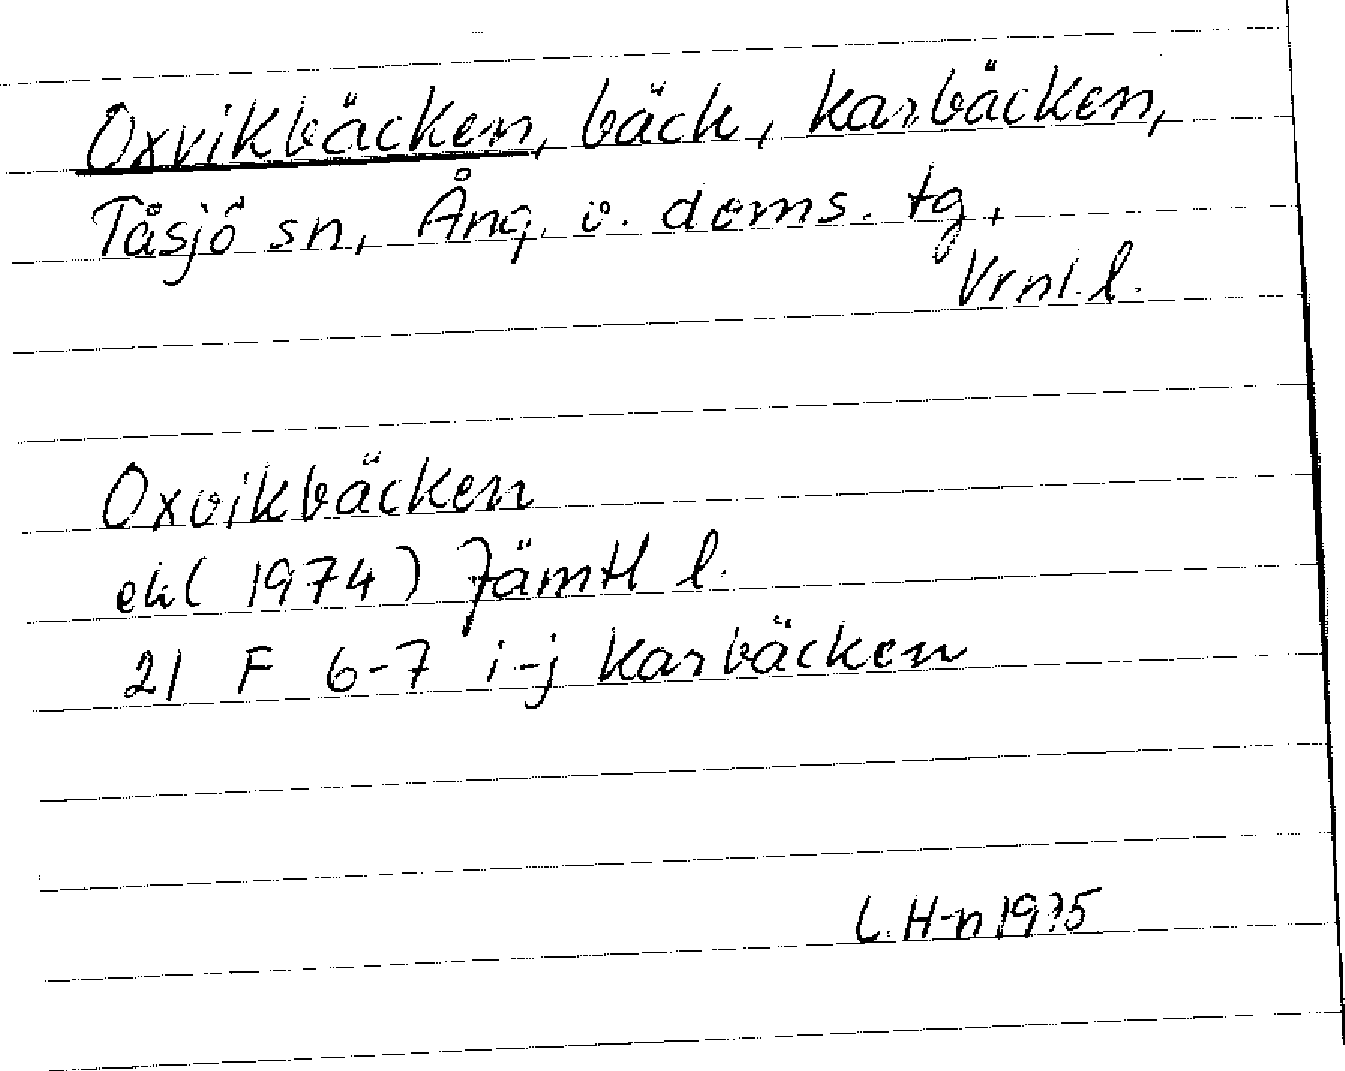 Oxvikbäcken, bäck, Karbäcken,
Tåsjö sn, Ång. o. doms. tg,
Vrnl. l.
Oxvikbäcken
ek( 1974) Jämtl l.
21 F 6-7 i-j Karbäcken
L. H-n 1975